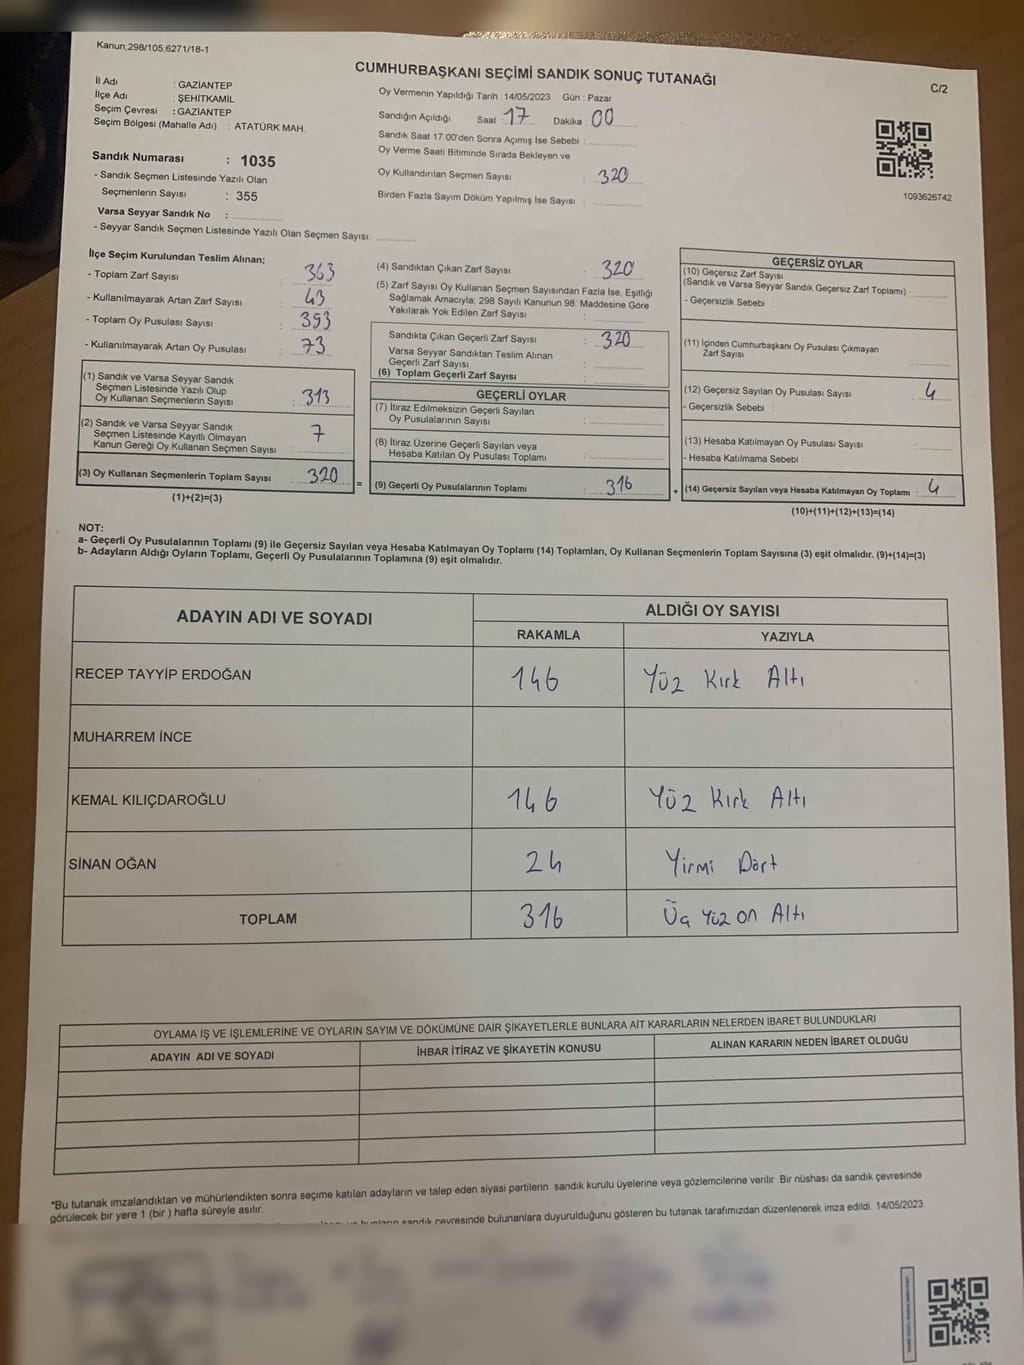 Kanun;298/105;6271/18-1
CUMHURBAŞKANI SEÇİMİ SANDIK SONUÇ TUTANAĞI
C/2
İl Adı : GAZİANTEP
İlçe Adı : ŞEHİTKAMİL
Seçim Çevresi : GAZİANTEP
Seçim Bölgesi (Mahalle Adı) : ATATÜRK MAH.
Oy Vermenin Yapıldığı Tarih : 14/05/2023 Gün : Pazar
Sandığın Açıldığı Saat : 17 Dakika : 00
Sandık Saat 17:00'den Sonra Açımış İse Sebebi :
Oy Verme Saati Bitiminde Sırada Bekleyen ve
Oy Kullandırılan Seçmen Sayısı : 320
Birden Fazla Sayım Döküm Yapılmış İse Sayısı :
1093626742
Sandık Numarası : 1035
- Sandık Seçmen Listesinde Yazılı Olan
Seçmenlerin Sayısı : 355
Varsa Seyyar Sandık No :
- Seyyar Sandık Seçmen Listesinde Yazılı Olan Seçmen Sayısı:
İlçe Seçim Kurulundan Teslim Alınan;
- Toplam Zarf Sayısı : 363
- Kullanılmayarak Artan Zarf Sayısı : 43
- Toplam Oy Pusulası Sayısı : 393
- Kullanılmayarak Artan Oy Pusulası : 73
(1) Sandık ve Varsa Seyyar Sandık
Seçmen Listesinde Yazılı Olup
Oy Kullanan Seçmenlerin Sayısı : 313
(2) Sandık ve Varsa Seyyar Sandık
Seçmen Listesinde Kayıtlı Olmayan
Kanun Gereği Oy Kullanan Seçmen Sayısı : 7
(3) Oy Kullanan Seçmenlerin Toplam Sayısı : 320 =
(1)+(2)=(3)
(4) Sandıktan Çıkan Zarf Sayısı : 320
(5) Zarf Sayısı Oy Kullanan Seçmen Sayısından Fazla İse, Eşitliği
Sağlamak Amacıyla; 298 Sayılı Kanunun 98. Maddesine Göre
Yakılarak Yok Edilen Zarf Sayısı :
Sandıkta Çıkan Geçerli Zarf Sayısı : 320
Varsa Seyyar Sandıktan Teslim Alınan
Geçerli Zarf Sayısı :
(6) Toplam Geçerli Zarf Sayısı :
GEÇERLİ OYLAR
(7) İtiraz Edilmeksizin Geçerli Sayılan
Oy Pusulalarının Sayısı :
(8) İtiraz Üzerine Geçerli Sayılan veya
Hesaba Katılan Oy Pusulası Toplamı :
(9) Geçerli Oy Pusulalarının Toplamı : 316 +
GEÇERSİZ OYLAR
(10) Geçersiz Zarf Sayısı
(Sandık ve Varsa Seyyar Sandık Geçersiz Zarf Toplamı) :
- Geçersizlik Sebebi :
(11) İçinden Cumhurbaşkanı Oy Pusulası Çıkmayan
Zarf Sayısı :
(12) Geçersiz Sayılan Oy Pusulası Sayısı : 4
- Geçersizlik Sebebi :
(13) Hesaba Katılmayan Oy Pusulası Sayısı :
- Hesaba Katılmama Sebebi :
(14) Geçersiz Sayılan veya Hesaba Katılmayan Oy Toplamı : 4
(10)+(11)+(12)+(13)=(14)
NOT:
a- Geçerli Oy Pusulalarının Toplamı (9) ile Geçersiz Sayılan veya Hesaba Katılmayan Oy Toplamı (14) Toplamları, Oy Kullanan Seçmenlerin Toplam Sayısına (3) eşit olmalıdır. (9)+(14)=(3)
b- Adayların Aldığı Oyların Toplamı, Geçerli Oy Pusulalarının Toplamına (9) eşit olmalıdır.
ADAYIN ADI VE SOYADI
ALDIĞI OY SAYISI
RAKAMLA YAZIYLA
RECEP TAYYİP ERDOĞAN 146 Yüz Kırk Altı
MUHARREM İNCE
KEMAL KILIÇDAROĞLU 146 Yüz Kırk Altı
SİNAN OĞAN 24 Yirmi Dört
TOPLAM 316 Üç Yüz on Altı
OYLAMA İŞ VE İŞLEMLERİNE VE OYLARIN SAYIM VE DÖKÜMÜNE DAİR ŞİKAYETLERLE BUNLARA AİT KARARLARIN NELERDEN İBARET BULUNDUKLARI
ADAYIN ADI VE SOYADI İHBAR İTİRAZ VE ŞİKAYETİN KONUSU ALINAN KARARIN NEDEN İBARET OLDUĞU
*Bu tutanak imzalandıktan ve mühürlendikten sonra seçime katılan adayların ve talep eden siyasi partilerin sandık kurulu üyelerine veya gözlemcilerine verilir. Bir nüshası da sandık çevresinde
görülecek bir yere 1 (bir ) hafta süreyle asılır.
sandık çevresinde bulunanlara duyurulduğunu gösteren bu tutanak tarafımızdan düzenlenerek imza edildi. 14/05/2023